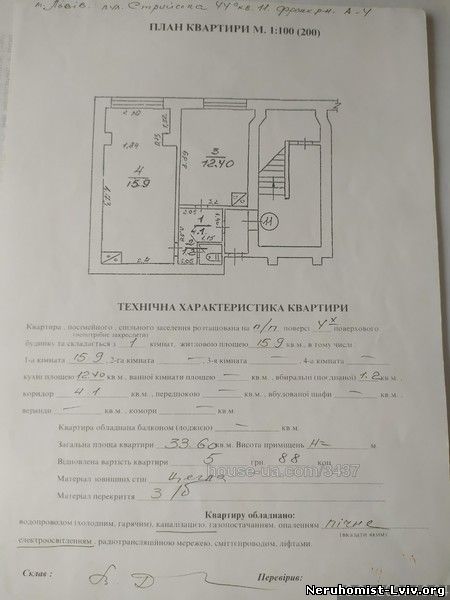 м. Львів. вул. Стрийська 44а кв. 11. Франкрн. А-4
ПЛАН КВАРТИРИ М. 1:100 (200)
4
15.9
3
12.40
1
4.1
11
ТЕХНІЧНА ХАРАКТЕРИСТИКА КВАРТИРИ
Квартира посімейного, спільного заселення розташована на п/п поверсі 4х поверхового
(непотрібне закреслити)
будинку та складається з 1 кімнат, житловою площею 15.9 кв.м, в тому числі
1-а кімната 15.9 2-га кімната — кв.м, 3-я кімната — кв.м, 4-а кімната —
кухні площею 12.40 кв.м, ванної кімнати площею — кв.м, вбиральні (поєднаної) 1.2 кв.м,
коридор 4.1 кв.м, передпокою — кв.м, вбудованої шафи — кв.м,
веранди — кв.м, комори — кв.м
Квартира обладнана балконом (лоджією) — кв.м
Загальна площа квартири 33.60 кв.м. Висота приміщень H= м
Відновлена вартість квартири 5 грн 88 коп
Матеріал зовнішніх стін цегла
Матеріал перекриття З/б
house-ua.com/3437
Квартиру обладнано:
водопроводом (холодним, гарячим), каналізацією, газопостачанням, опаленням пічне
(вказати яким)
електроосвітленням, радіотрансляційною мережею, сміттєпроводом, ліфтами.
Склав: Перевірив:
Neruhomist-Lviv.org